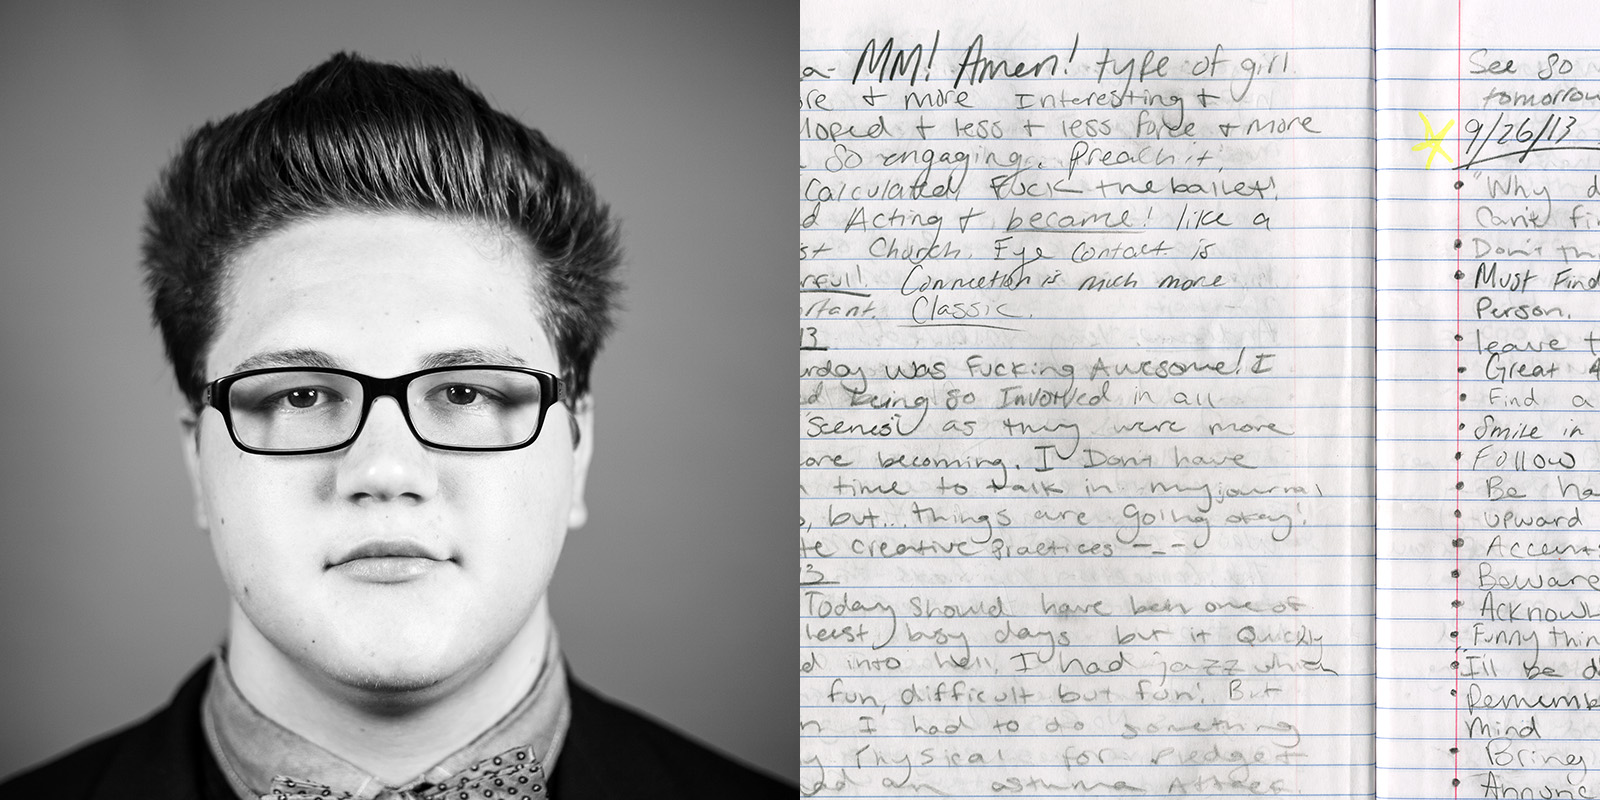 a- MM! Amen! type of girl
ore + more Interesting +
loped + less + less force + more
so engaging. Preach it,
Calculated Fuck the ballet!
d Acting + became! like a
st Church. Eye Contact is
rful! Connection is much more
rtant. Classic.
13
urday was Fucking Awesome! I
d being so Involved in all
"scenes" as they were more
ore becoming. I Don't have
time to talk in my journal
, but... things are going okay!
te creative practices -_-
13
Today should have been one of
least busy days but it Quickly
d into hell. I had jazz which
fun, difficult but fun! But
n I had to do something
Physical for Pledge +
ad an asthma Attack.
See so
tomorrow
9/26/13
• "Why d
Can't fi
• Don't th
• Must Find
Person.
• leave t
• Great
• Find a
• Smile in
• Follow
• Be ha
• upward
• Accents
• Beware
• Acknowl
• Funny thin
• I'll be d
• Rememb
mind
• Bring
• Announc